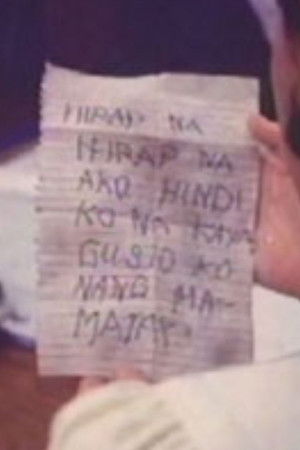 HIRAP NA
HIRAP NA
AKO HINDI
KO NA KAYA
GUSTO KO
NANG MA-
MATAY